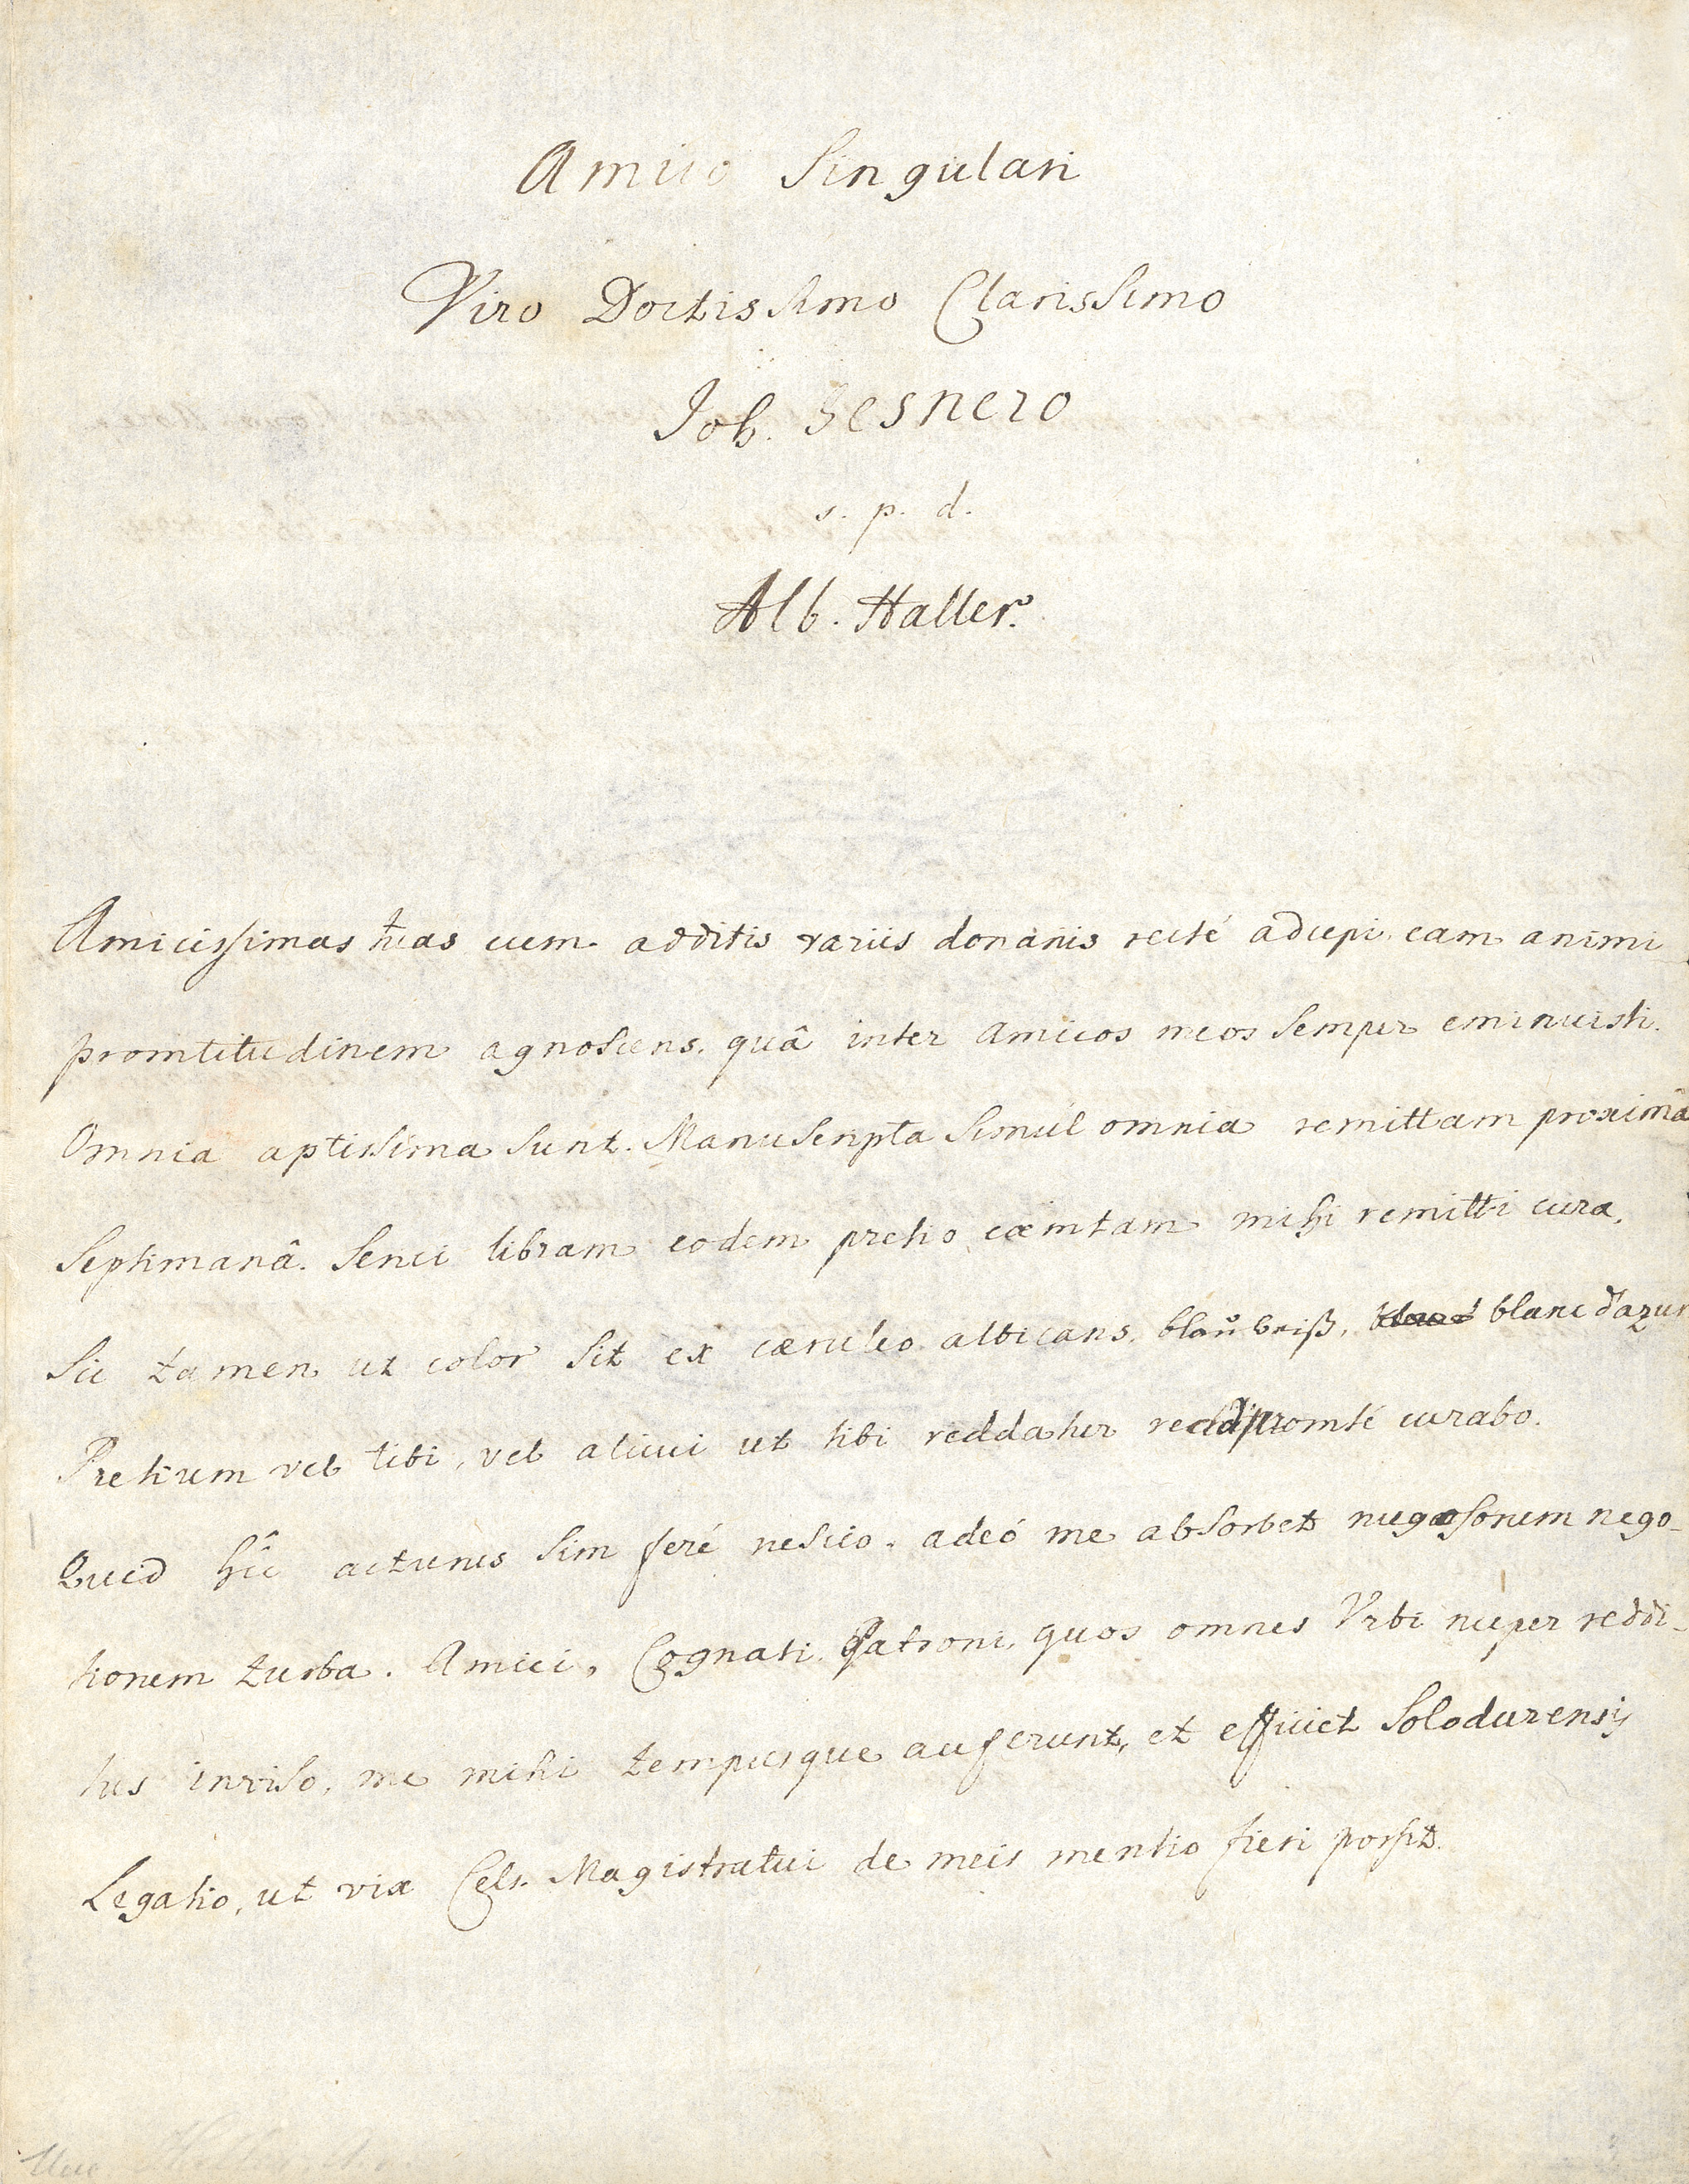 Amico Singulari
Viro Doctissimo Clarissimo
Joh. Gesnero
s. p. d.
Alb. Haller.
Amicissimas tuas cum additis variis donariis recté adcepi, eam animi
promtitudinem agnoscens, quâ inter Amicos meos semper eminuisti.
Omnia aptissima sunt. Manuscripta simul omnia remittam proximâ
Septimanâ. Serici libram eodem pretio coemtam mihi remitti cura,
Sic tamen ut color sit ex caeruleo albicans, blauweiß, blanc d'azur
Pretium vel tibi, vel alicui ut tibi reddatur promté curabo.
Quid hîc acturus sim feré nescio, adeó me absorbet nugosorum nego-
tiorum turba. Amici, Cognati, Patroni, quos omnes Urbi nuper reddi-
tus inviso, me mihi tempusque auferunt, et efficiet Solodurensis
Legatio, ut vix Cels. Magistratui de meis mentio fieri possit.